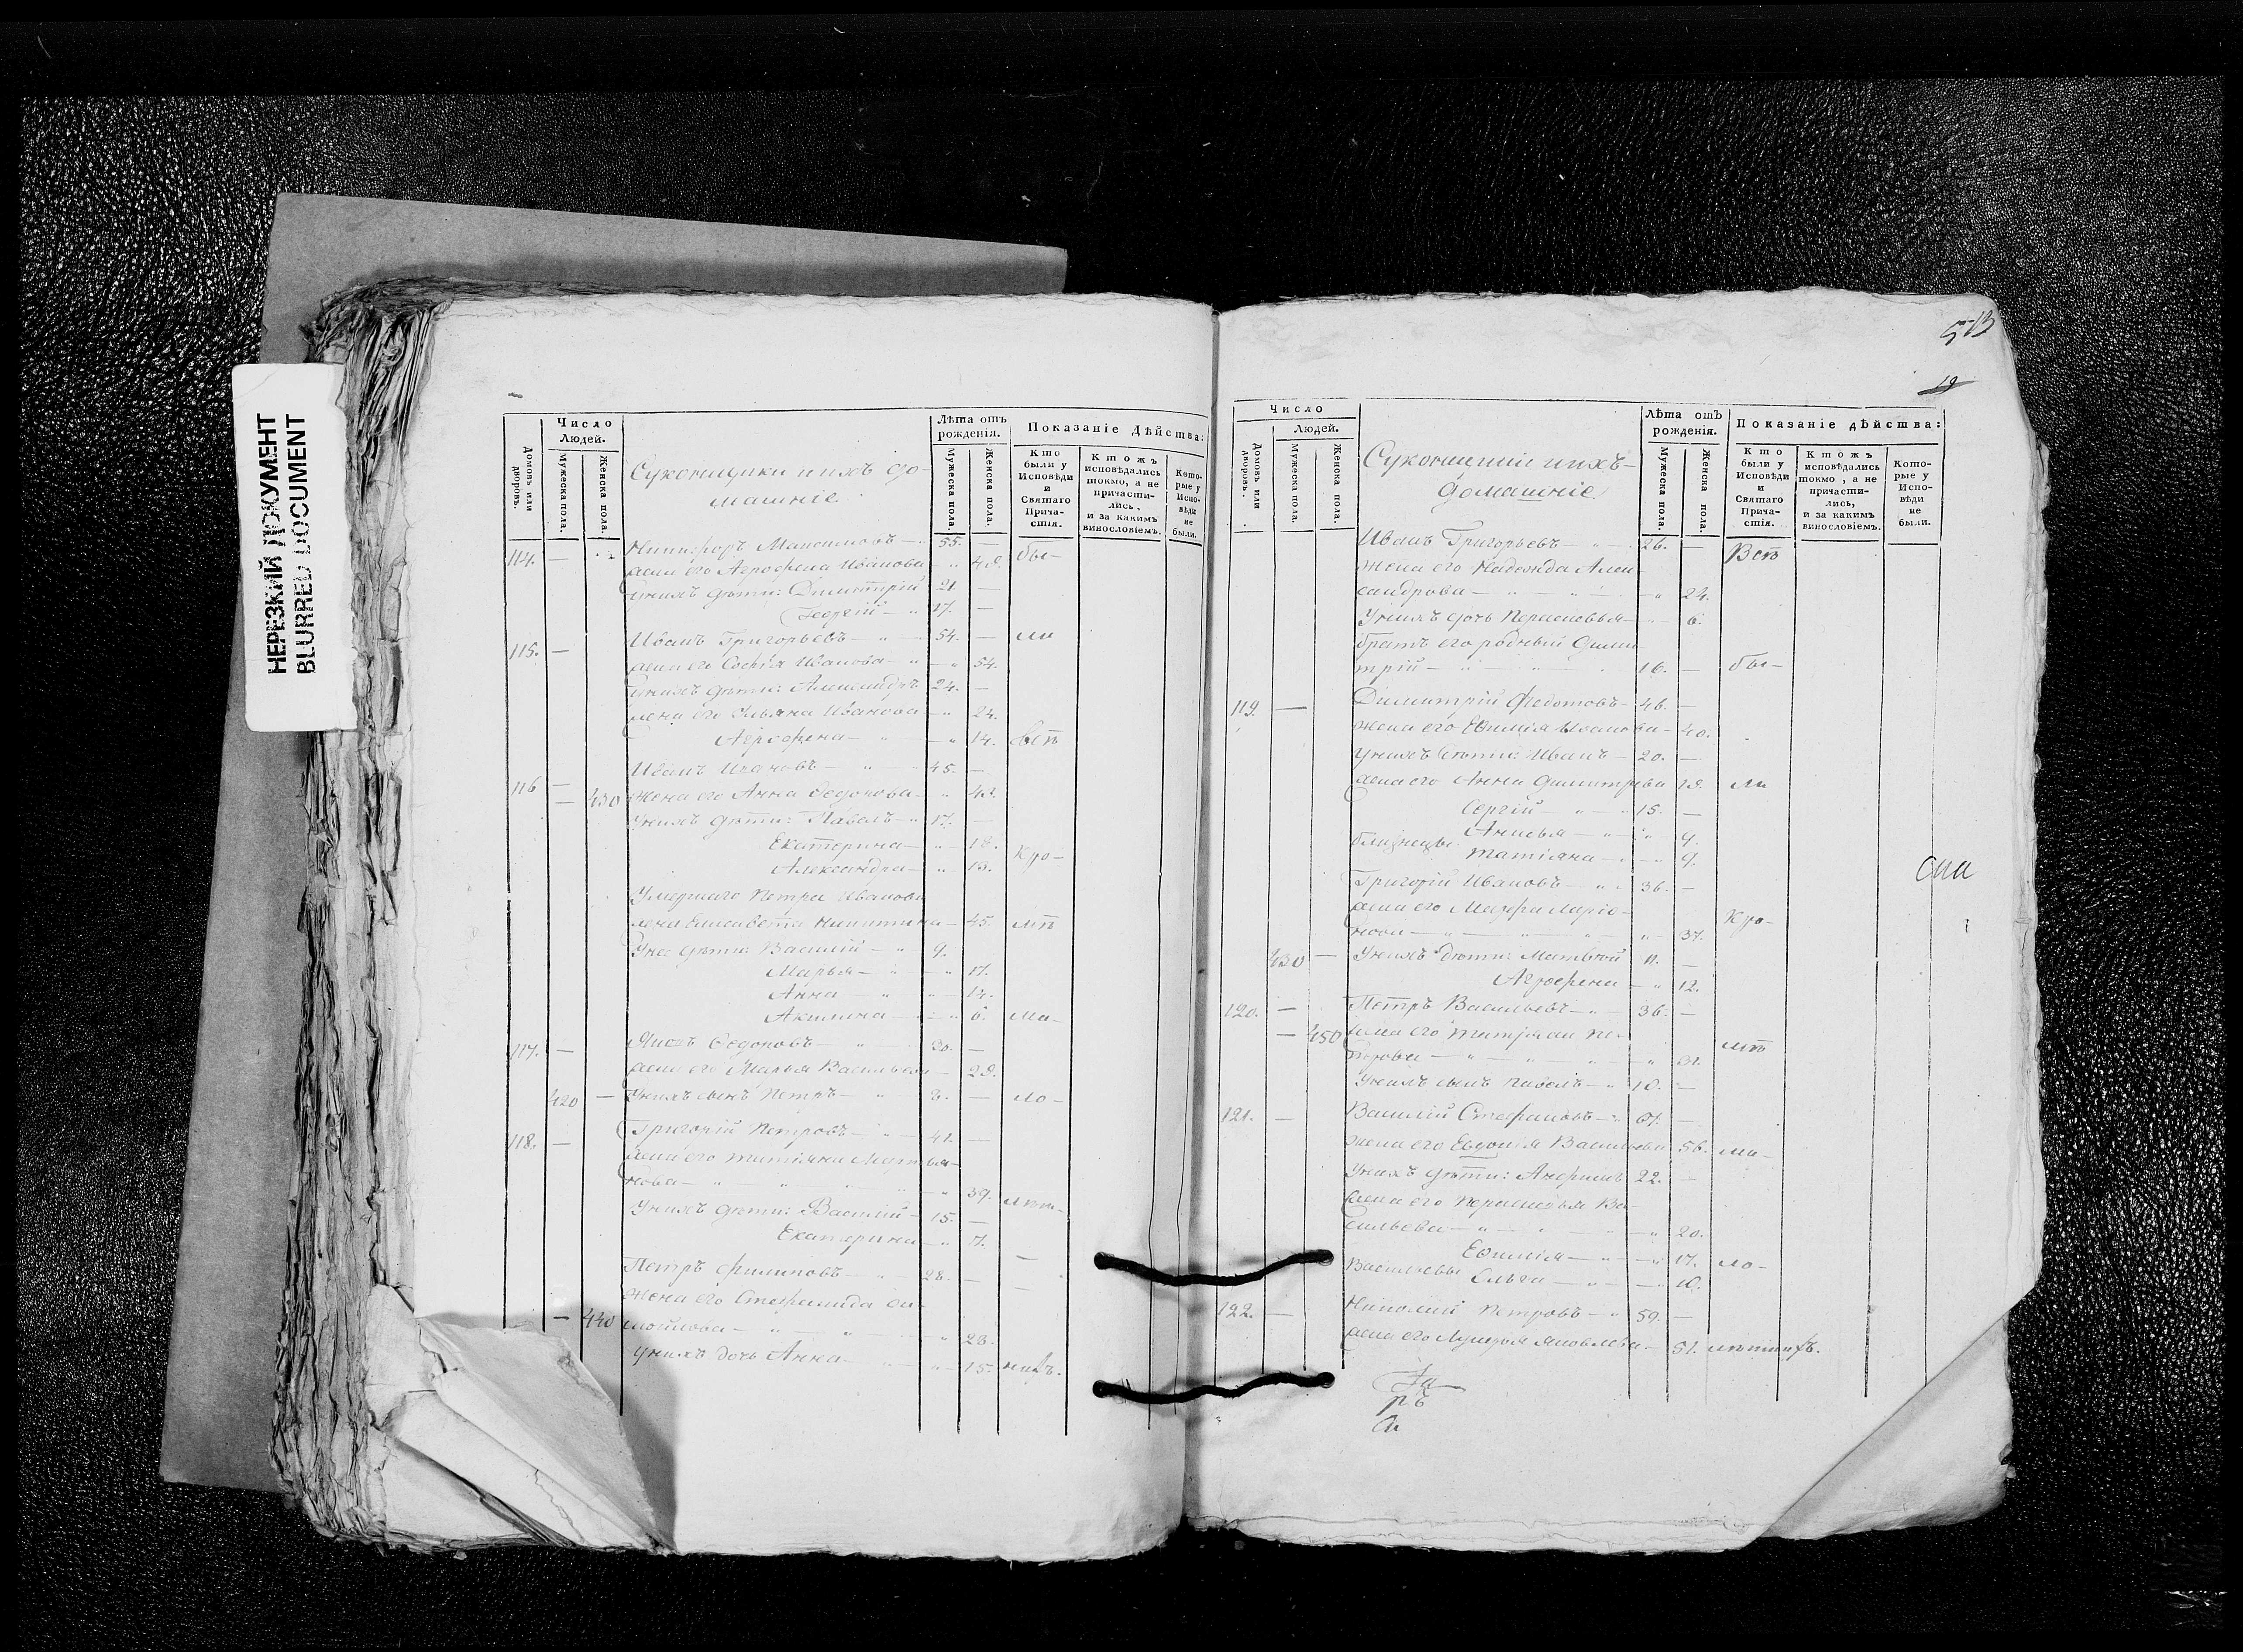 НЕРЕЗКИЙ ДОКУМЕНТ
BLURRED DOCUMENT
Число
Людей.
Домовъ или дворовъ.
Мужеска пола.
Женска пола.
Суконщики и ихъ до-
машніе
Лѣта отъ
рожденія.
Мужеска пола.
Женска пола.
Показаніе Дѣйства:
Кто
были у
Исповѣди
и
Святаго
Прича-
стія.
Ктожъ
исповѣдались
токмо, а не
причасти-
лись,
и за какимъ
винословіемъ.
Кото-
рые у
Испо-
вѣди
не
были.
114. — Никифоръ Максимовъ — 55. —
жена его Агрофена Иванова — 48. бы-
у нихъ дѣти: Димитрій 21. —
Георгій — 17. —
115. — Иванъ Григорьевъ — 54. — ли
жена его Софія Иванова — 54.
у нихъ дѣти: Александръ 24. —
жена его Ульяна Иванова — 24.
Агрофена — 14. всѣ
116 — Иванъ Ивановъ — 45. —
— 430 жена его Анна Федорова — 43.
у нихъ дѣти: Павелъ — 17. —
Екатерина — 18.
Александра — 13. кро-
Умершаго Петра Иванова
жена Елисавета Никитина — 45. мѣ
у нея дѣти: Василій — 9.
Марья — 17.
Анна — 14.
Акилина — 6. ма-
117. — Яковъ Федоровъ — 30. —
жена его Марья Васильева — 28.
420 — у нихъ сынъ Петръ — 3. — ло-
118. — Григорій Петровъ — 41. —
жена его Татіяна Мартья-
нова — 39. лѣт-
у нихъ дѣти: Василій — 15. —
Екатерина — 7.
Петръ Филиповъ — 28. —
жена его Степанида Са-
— 440 мойлова — 28.
у нихъ дочь Анна — 15. нихъ.
513
19
Число
Людей.
Домовъ или дворовъ.
Мужеска пола.
Женска пола.
Суконщики и ихъ-
домашніе
Лѣта отъ
рожденія.
Мужеска пола.
Женска пола.
Показаніе дѣйства:
Кто
были у
Исповѣди
и
Святаго
Прича-
стія.
Ктожъ
исповѣдались
токмо, а не
причасти-
лись,
и за какимъ
винословіемъ.
Кото-
рые у
Испо-
вѣди
не
были.
Иванъ Григорьевъ — 26. — Всѣ
жена его Надежда Алек-
сандрова — 24.
У нихъ дочь Парасковья — 6.
братъ его родный Дими-
трій — 16. — бы-
119. — Димитрій Федотовъ — 46. —
жена его Евѳимія Иванова — 40.
У нихъ дѣти: Иванъ — 20. —
жена его Анна Димитрева 19. ли
Сергій — 15. —
близнецы Анисья — 9.
Татіяна — 9.
Григорій Ивановъ — 36. —
жена его Марфа Ларіо-
нова — 37. кро-
430 — У нихъ дѣти: Матѳей 11. —
Агрофена — 12.
120. — Петръ Васильевъ — 36. —
— 450 жена его Татіяна Пе-
трова — 31. мѣ
У нихъ сынъ Павелъ — 10. —
121. — Василій Стефановъ — 61. —
жена его Евдокія Васильева 56. ма-
У нихъ дѣти: 22. —
жена его Парасковья Ва-
сильева — 20.
Евѳимія — 17. ло-
Васильевы Ольга — 10.
122. — Николай Петровъ — 59. —
жена его Лукерья Яковлева — 51. лѣтнихъ.
ръ